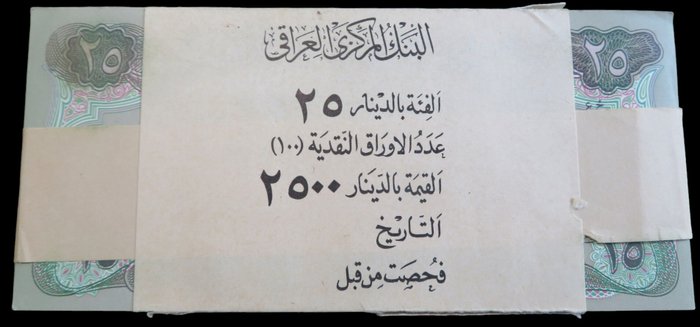 البنك المركزي العراقي
٢٥
٢٥
الفئة بالدينار ٢٥
عدد الاوراق النقدية (١٠٠)
القيمة بالدينار ٢٥٠٠
التاريخ
فحصت من قبل
٢٥
٢٥